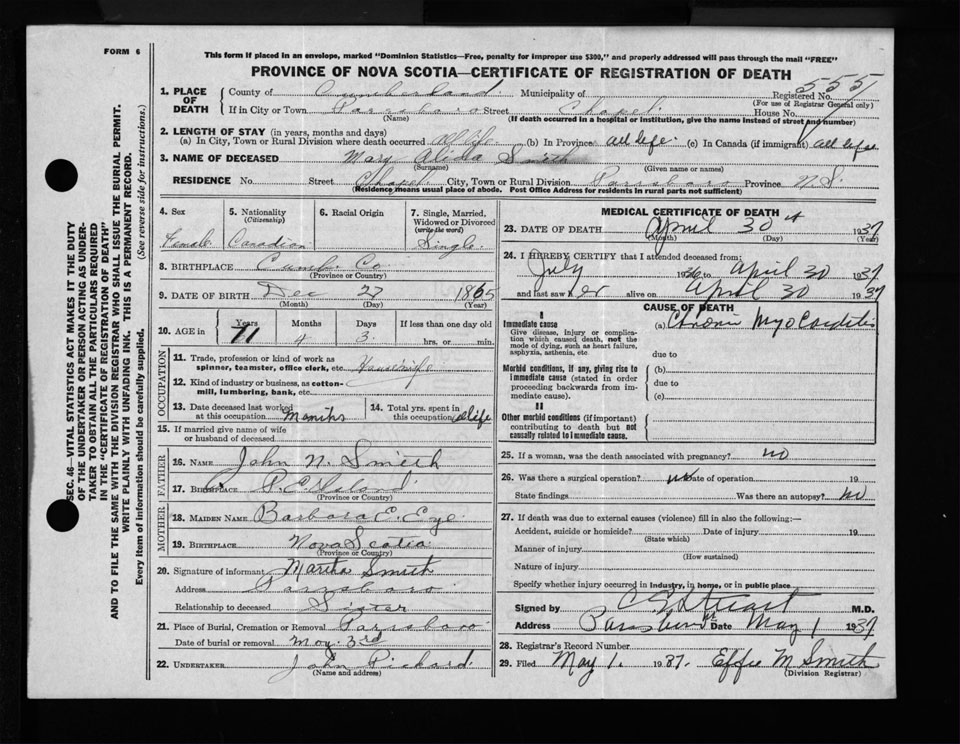 FORM 6
This form if placed in an envelope, marked "Dominion Statistics—Free, penalty for improper use $300," and properly addressed will pass through the mail "FREE"
PROVINCE OF NOVA SCOTIA—CERTIFICATE OF REGISTRATION OF DEATH
SEC. 46—VITAL STATISTICS ACT MAKES IT THE DUTY
OF THE UNDERTAKER OR PERSON ACTING AS UNDER-
TAKER TO OBTAIN ALL THE PARTICULARS REQUIRED
IN THE "CERTIFICATE OF REGISTRATION OF DEATH"
AND TO FILE THE SAME WITH THE DIVISION REGISTRAR WHO SHALL ISSUE THE BURIAL PERMIT.
WRITE PLAINLY WITH UNFADING INK. THIS IS A PERMANENT RECORD.
Every item of information should be carefully supplied. (See reverse side for instructions.)
1. PLACE OF DEATH
County of Cumberland Municipality of Registered No. 555
(For use of Registrar General only)
If in City or Town Parrsboro Street Chapel House No.
(Name) (If death occurred in a hospital or institution, give the name instead of street and number)
2. LENGTH OF STAY (in years, months and days)
(a) In City, Town or Rural Division where death occurred All life (b) In Province All life (c) In Canada (if immigrant) All life
3. NAME OF DECEASED Mary Alida Smith
(Surname) (Given name or names)
RESIDENCE No. Street Chapel City, Town or Rural Division Parrsboro Province N.S.
(Residence means usual place of abode. Post Office Address for residents in rural parts not sufficient)
4. Sex Female
5. Nationality (Citizenship) Canadian
6. Racial Origin
7. Single, Married, Widowed or Divorced (write the word) Single
8. BIRTHPLACE Cumb. Co
(Province or Country)
9. DATE OF BIRTH Dec 27 1865
(Month) (Day) (Year)
10. AGE in Years 71 Months 4 Days 3 If less than one day old hrs. or min.
OCCUPATION
11. Trade, profession or kind of work as spinner, teamster, office clerk, etc. Housewife
12. Kind of industry or business, as cotton-mill, lumbering, bank, etc.
13. Date deceased last worked at this occupation Months
14. Total yrs. spent in this occupation all life
15. If married give name of wife or husband of deceased
FATHER
16. NAME John N. Smith
17. BIRTHPLACE P.E. Island
(Province or Country)
MOTHER
18. MAIDEN NAME Barbara E. Eye
19. BIRTHPLACE Nova Scotia
(Province or Country)
20. Signature of informant Martha Smith
Address Parrsboro
Relationship to deceased Sister
21. Place of Burial, Cremation or Removal Parrsboro
Date of burial or removal May 3rd
22. UNDERTAKER John Pickard
(Name and address)
MEDICAL CERTIFICATE OF DEATH
23. DATE OF DEATH April 30 1937
(Month) (Day) (Year)
24. I HEREBY CERTIFY that I attended deceased from:
July 1936 to April 30 1937
and last saw her alive on April 30 1937
CAUSE OF DEATH
I
Immediate cause (a) Chronic Myocarditis
Give disease, injury or complication which caused death, not the mode of dying, such as heart failure, asphyxia, asthenia, etc
due to
Morbid conditions, if any, giving rise to immediate cause (stated in order proceeding backwards from immediate cause).
(b)
due to
(c)
II
Other morbid conditions (if important) contributing to death but not causally related to immediate cause.
25. If a woman, was the death associated with pregnancy? no
26. Was there a surgical operation? no Date of operation 19
State findings Was there an autopsy? no
27. If death was due to external causes (violence) fill in also the following:—
Accident, suicide or homicide? Date of injury 19
(State which)
Manner of injury
(How sustained)
Nature of injury
Specify whether injury occurred in industry, in home, or in public place
Signed by Stuart M.D.
Address Parrsboro Date May 1 1937
28. Registrar's Record Number
29. Filed May 1. 1937. Effie M Smith
(Division Registrar)